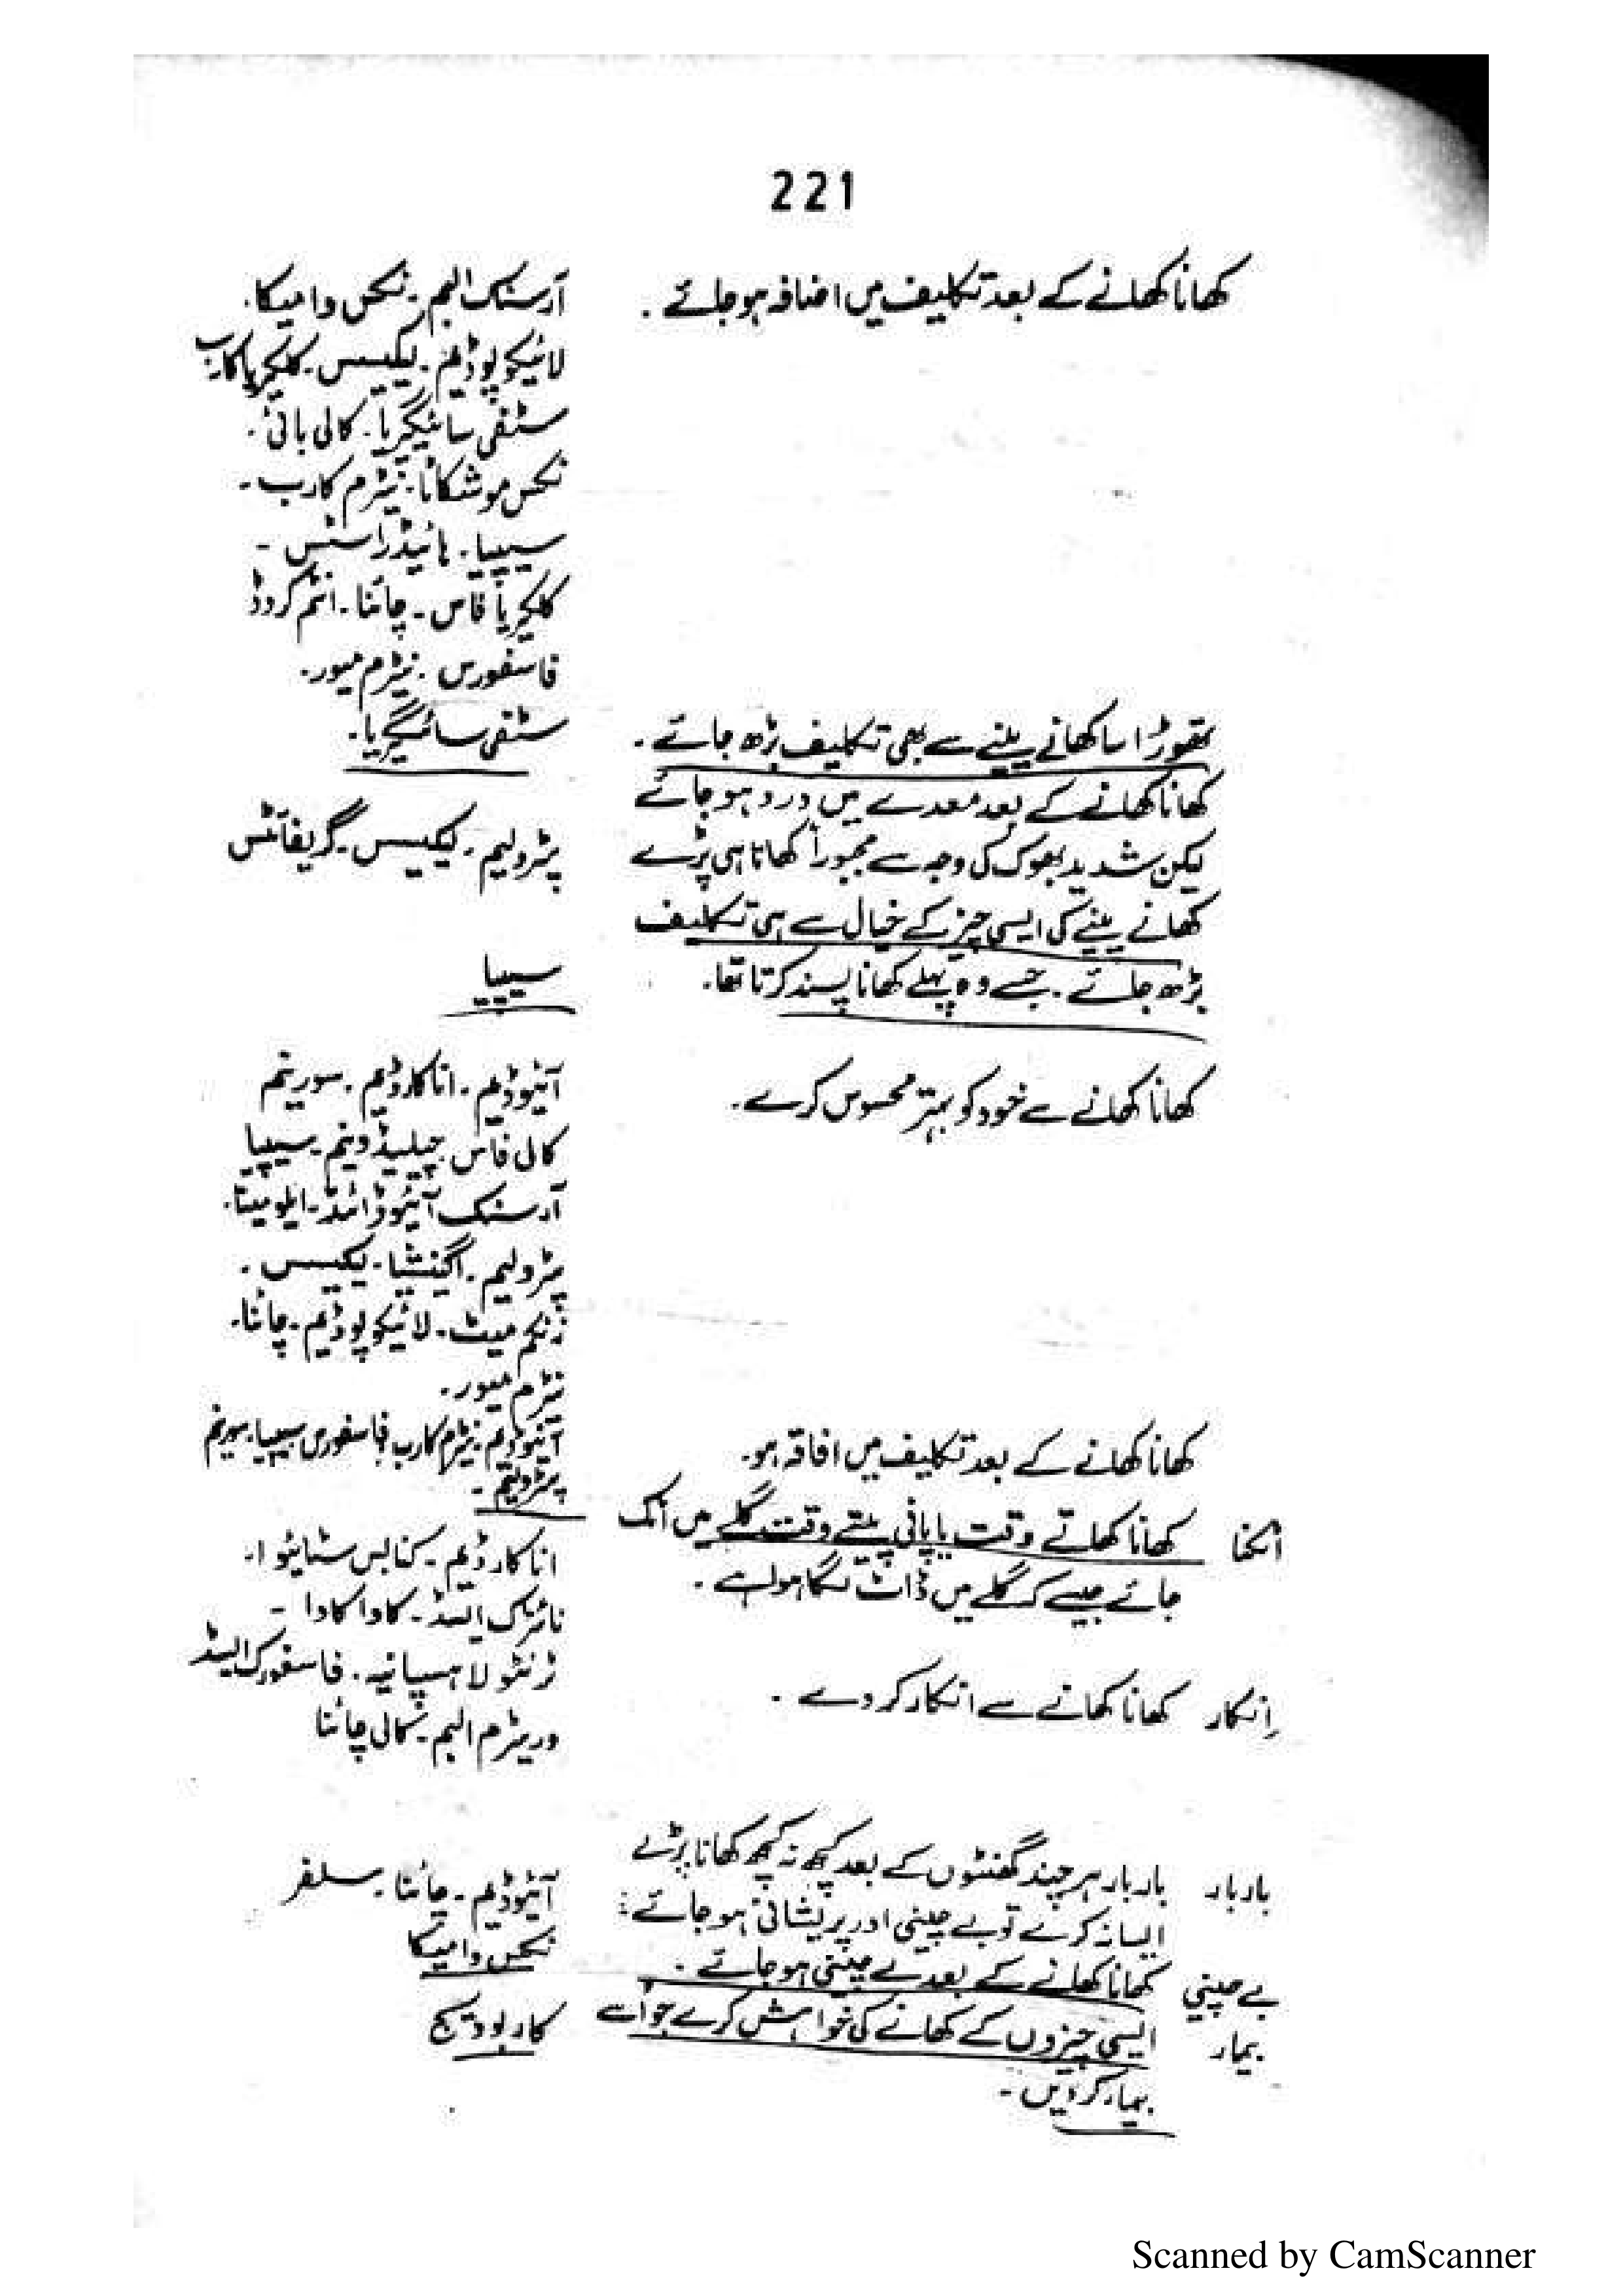 221
کھانا کھانے کے بعد تکلیف میں اضافہ ہو جائے ۔
آرسنک البم ۔ نکس وامیکا ۔
لائیکو پوڈیم ۔ لیکیسس ۔ کلکیریا کارب
سٹفی سائیگیریا ۔ کالی بائی ۔
نکس موشکاٹا ۔ نیٹرم کارب ۔
سیپیا ۔ ہائیڈراسٹس ۔
کلکیریا فاس ۔ چائنا ۔ انٹم کروڈ
فاسفورس ۔ نیٹرم میور ۔
تھوڑا سا کھانے پینے سے بھی تکلیف بڑھ جائے ۔
سٹفی سائیگیریا ۔
کھانا کھانے کے بعد معدے میں درد ہو جائے
لیکن شدید بھوک کی وجہ سے مجبوراً کھانا ہی پڑے
پٹرولیم ۔ لیکیسس ۔ گریفائٹس
کھانے پینے کی ایسی چیز کے خیال سے ہی تکلیف
بڑھ جائے ۔ جسے وہ پہلے کھانا پسند کرتا تھا ۔
سیپیا
کھانا کھانے سے خود کو بہتر محسوس کرے ۔
آئیوڈیم ۔ اناکارڈیم ۔ سورینم
کالی فاس ۔ چیلیڈونیم ۔ سیپیا
آرسنک آئیوڈائڈ ۔ ایلومینا ۔
پٹرولیم ۔ اگنیشیا ۔ لیکیسس ۔
زنکم میٹ ۔ لائیکو پوڈیم ۔ چائنا ۔
نیٹرم میور ۔
کھانا کھانے کے بعد تکلیف میں افاقہ ہو ۔
آئیوڈیم ۔ نیٹرم کارب ۔ فاسفورس سیپیا ۔ سورینم
پٹرولیم ۔
اٹکنا کھانا کھاتے وقت یا پانی پیتے وقت گلے میں اٹک
جائے جیسے کہ گلے میں ڈاٹ لگا ہوا ہے ۔
اناکارڈیم ۔ کنابس سٹائیوا ۔
نائٹرک ایسڈ ۔ کاوا کاوا ۔
اِنکار کھانا کھانے سے انکار کر دے ۔
ٹرنٹولا ہسپانیہ ۔ فاسفورک ایسڈ
وریٹرم البم ۔ کالی چائنا
بار بار بار بار ہر چند گھنٹوں کے بعد کچھ نہ کچھ کھانا پڑے
ایسا نہ کرے تو بے چینی اور پریشانی ہو جائے ۔
آئیوڈیم ۔ چائنا ۔ سلفر
بے چینی کھانا کھانے کے بعد بے چینی ہو جائے ۔
نکس وامیکا
بیمار ایسی چیزوں کے کھانے کی خواہش کرے جو اسے
بیمار کر دیں ۔
کاربو ویج
Scanned by CamScanner